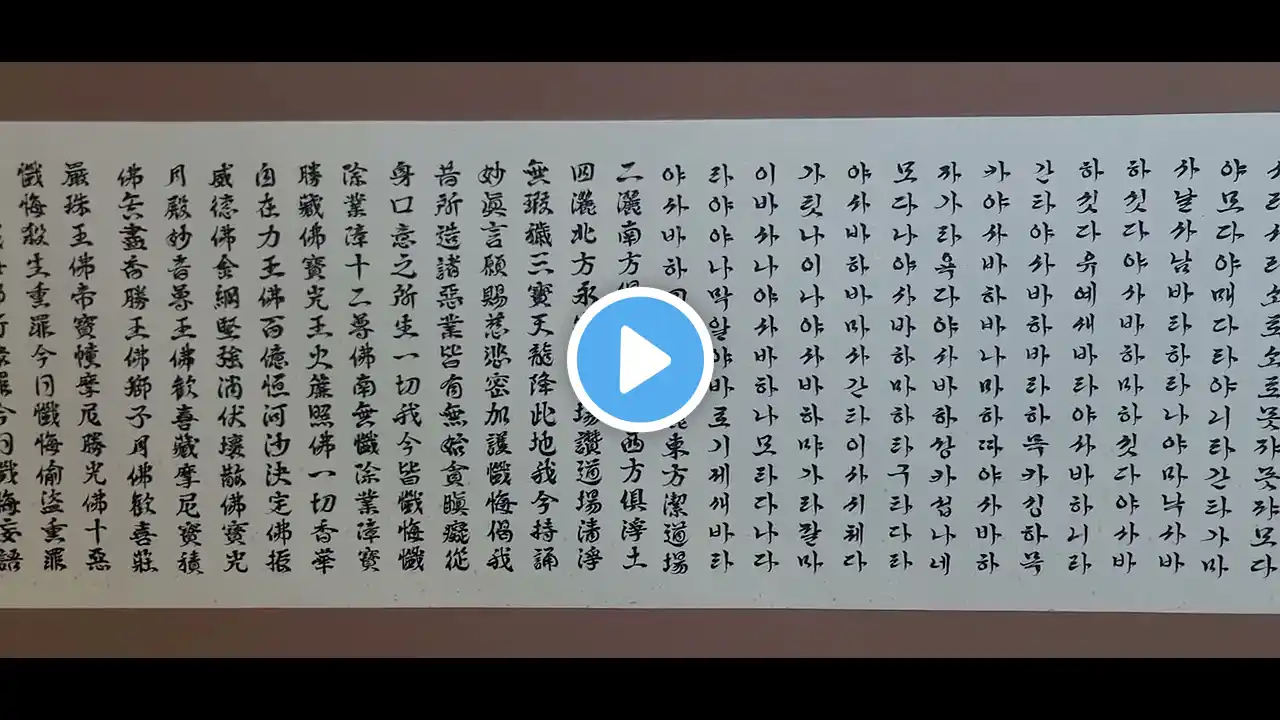 리시리소로소로못쟈못쟈모다
야모다야매다라야니라간타가마
사날사남바라하라나야마낙사바
하싯다야사바하마하싯다야사바
하싯다유예새바라야사바하니라
간타야사바하바라하목카싱하목
카야사바하바나마하따야사바하
자가라욕다야사바하상카섭나네
모다나야사바하마하라구타다라
야사바하바마사간타이사시체다
가릿나이나야사바하먀가라잘마
이바사나야사바하나모라다나다
라야야나막알야바로기제새바라
야사바하 東方潔道場
二灑南方 西方俱淨土
四灑北方永 場讚道場清淨
無瑕穢三寶天龍降此地我今持誦
妙眞言願賜慈悲密加護懺悔偈我
昔所造諸惡業皆有無始貪瞋癡從
身口意之所生一切我今皆懺悔懺
除業障十二尊佛南無懺除業障寶
勝藏佛寶光王火簾照佛一切香華
自在力王佛百億恒河沙決定佛振
威德佛金綱堅強消伏壞散佛寶光
月殿妙音尊王佛歡喜藏摩尼寶積
佛無盡香勝王佛獅子月佛歡喜莊
嚴珠王佛帝寶幢摩尼勝光佛十惡
懺悔殺生重罪今日懺悔偷盜重罪
今日懺悔妄語